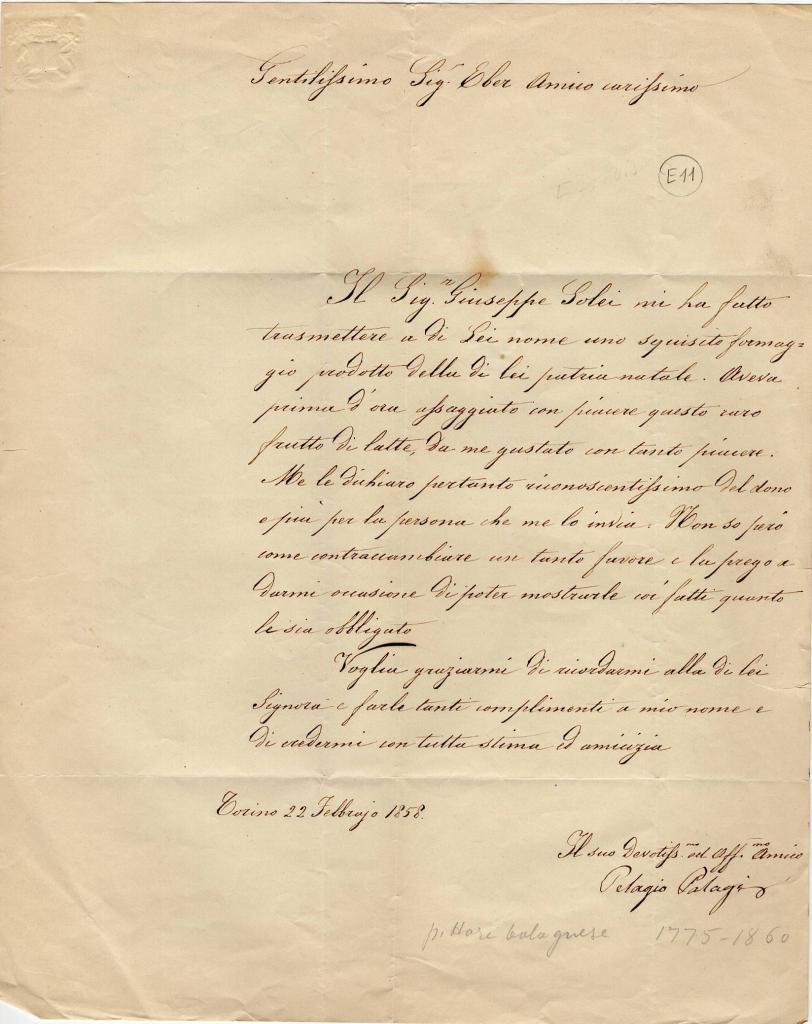 Gentilissimo Sig.r Eber Amico carissimo
E11
Il Sig.n Giuseppe Solei mi ha fatto
trasmettere a di Lei nome uno squisito formag=
gio prodotto della di lei patria natale. Aveva
prima d'ora assaggiato con piacere questo raro
frutto di latte, da me gustato con tanto piacere.
Me le dichiaro pertanto riconoscentissimo del dono
e più per la persona che me lo invia. Non so però
come contraccambiare un tanto favore e la prego a
darmi occasione di poter mostrarle coi fatti quanto
le sia obbligato
Voglia graziarmi di ricordarmi alla di lei
Signora e farle tanti complimenti a mio nome e
di credermi con tutta stima ed amicizia
Torino 22 Febbrajo 1858.
Il suo Devotiss.mo ed Aff.mo Amico
Pelagio Palagi
pittore bolognese 1775-1860